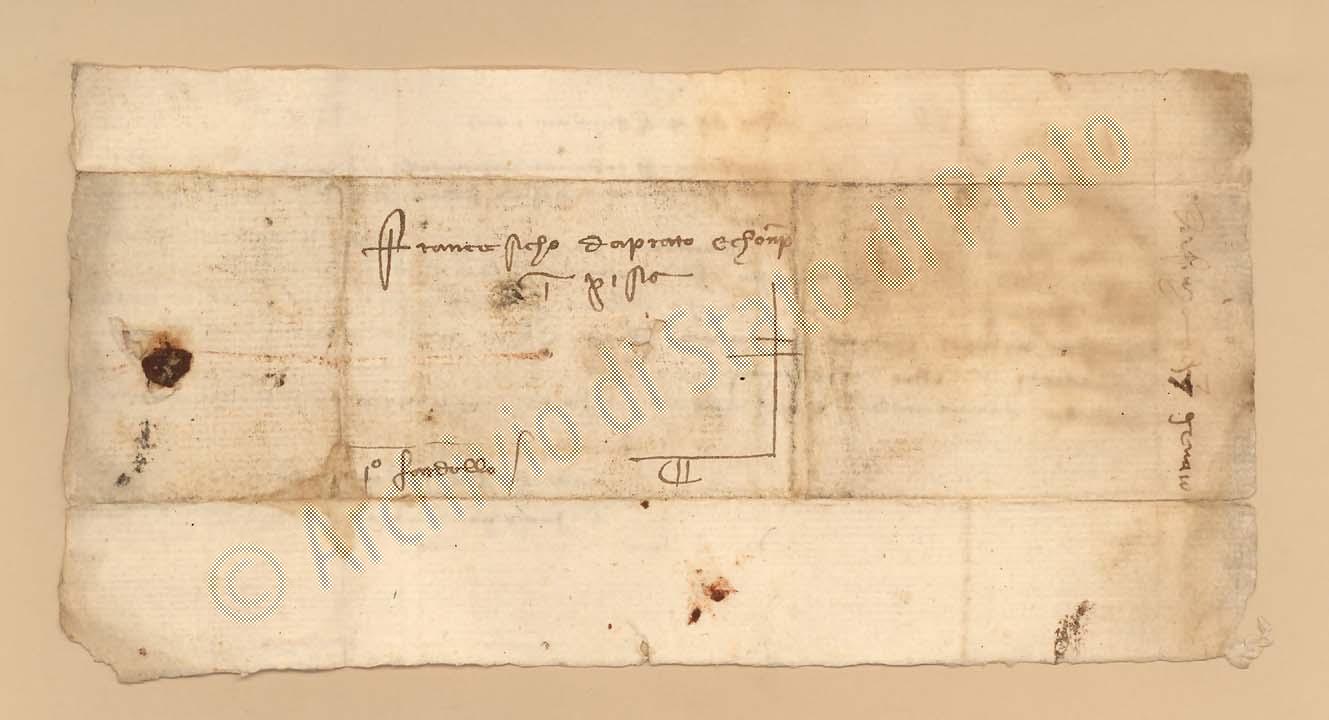 Francescho daprato e chonp
in pisa
1º fardello
7 genaio
© Archivio di Stato di Prato